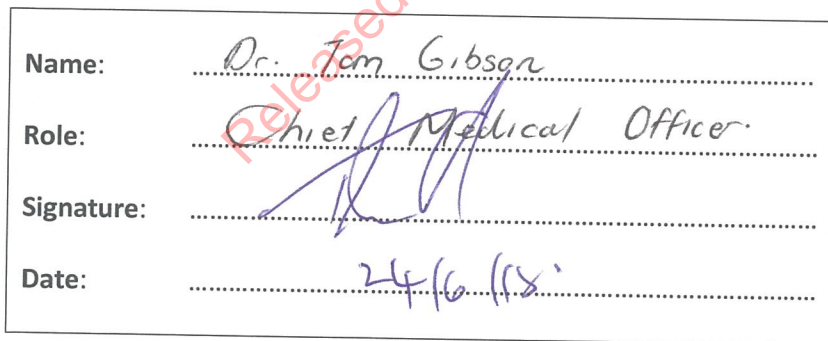 Released
Name: Dr. Tom Gibson
Role: Chief Medical Officer.
Signature:
Date: 24/6/18